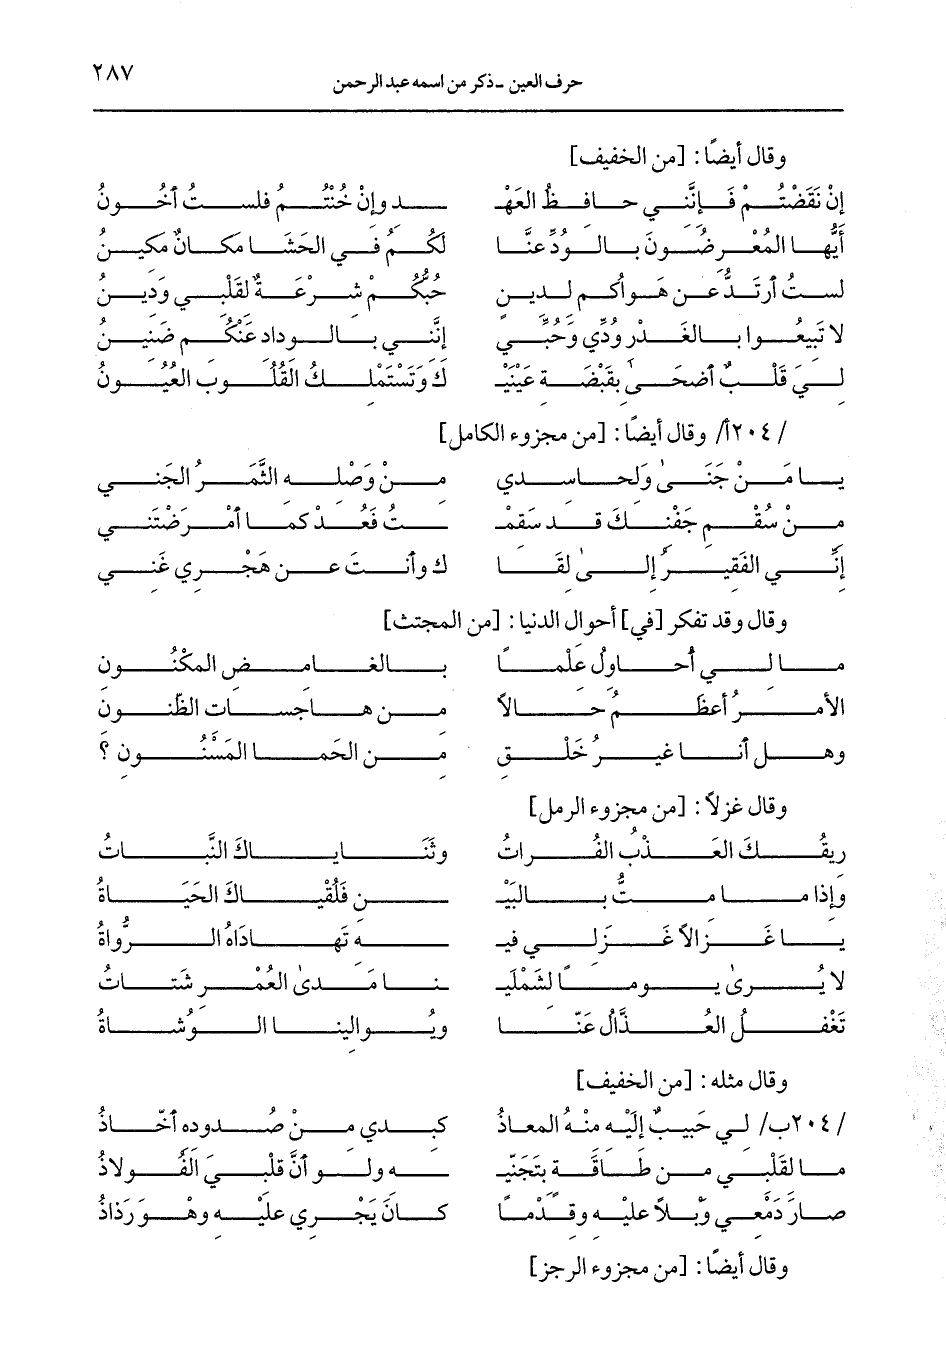 حرف العين - ذكر من اسمه عبد الرحمن ٢٨٧
وقال أيضًا: [من الخفيف]
إنْ نَقَضْتُمْ فَإنَّني حافظُ العَهْـ ـدِ وإنْ خُنْتُمْ فلستُ أخُونُ
أيُّها المُعْرِضُونَ بالوُدِّ عنَّا لكُمُ في الحَشَا مكانٌ مكينُ
لستُ أرتَدُّ عن هَواكم لدينٍ حُبُّكُمْ شِرْعَةٌ لقَلْبي وَدِينُ
لا تَبيعُوا بالغَدْرِ وُدِّي وَحُبِّي إنَّني بالودادِ عَنْكُم ضَنِينُ
ليَ قَلْبٌ أضحَىٰ بقَبْضَةِ عَيْنَيْـ ـكَ وَتَسْتَمْلِكُ القُلُوبَ العُيُونُ
/٢٠٤أ/ وقال أيضًا: [من مجزوء الكامل]
يا مَنْ جَنَىٰ وَلحاسدي مِنْ وَصْلِهِ الثَّمَرُ الجَني
مِنْ سُقْمِ جَفْنِكَ قد سَقِمْـ ـتُ فَعُدْ كما أمْرَضْتَني
إنِّي الفَقيرُ إلىٰ لقَا كَ وأنتَ عن هَجْري غَني
وقال وقد تفكر [في] أحوال الدنيا: [من المجتث]
ما لي أُحاولُ عِلْمًا بالغامضِ المكْنُونِ
الأمرُ أعظَمُ حالاً من هاجساتِ الظّنونِ
وهل أنا غيرُ خَلْقٍ مِنَ الحَمأ المَسْنُونِ ؟
وقال غزلاً: [من مجزوء الرمل]
ريقُكَ العَذْبُ الفُراتُ وثَنَاياكَ النَّباتُ
وإذا ما متُّ بالبَيْـ ـنِ فَلُقْياكَ الحَيَاةُ
يا غَزالاً غَزَلي فيـ ـهِ تَهَادَاهُ الرُّواةُ
لا يُرىٰ يومًا لشَمْلَيـ ـنا مَدىٰ العُمْرِ شَتاتُ
تَغْفلُ العُذَّالُ عَنّا ويُوالينا الوُشاةُ
وقال مثله: [من الخفيف]
/٢٠٤ب/ لي حَبيبٌ إلَيْهِ مِنْهُ المعاذُ كبدي مِنْ صُدودِه أخّاذُ
ما لقَلْبي من طاقَةٍ بتَجَنّيـ ـهِ ولو أنَّ قلْبيَ الفُولاذُ
صارَ دَمْعي وَبْلاً عليْهِ وقِدْمًا كانَ يَجْري عليْهِ وهْو رَذاذُ
وقال أيضًا: [من مجزوء الرجز]